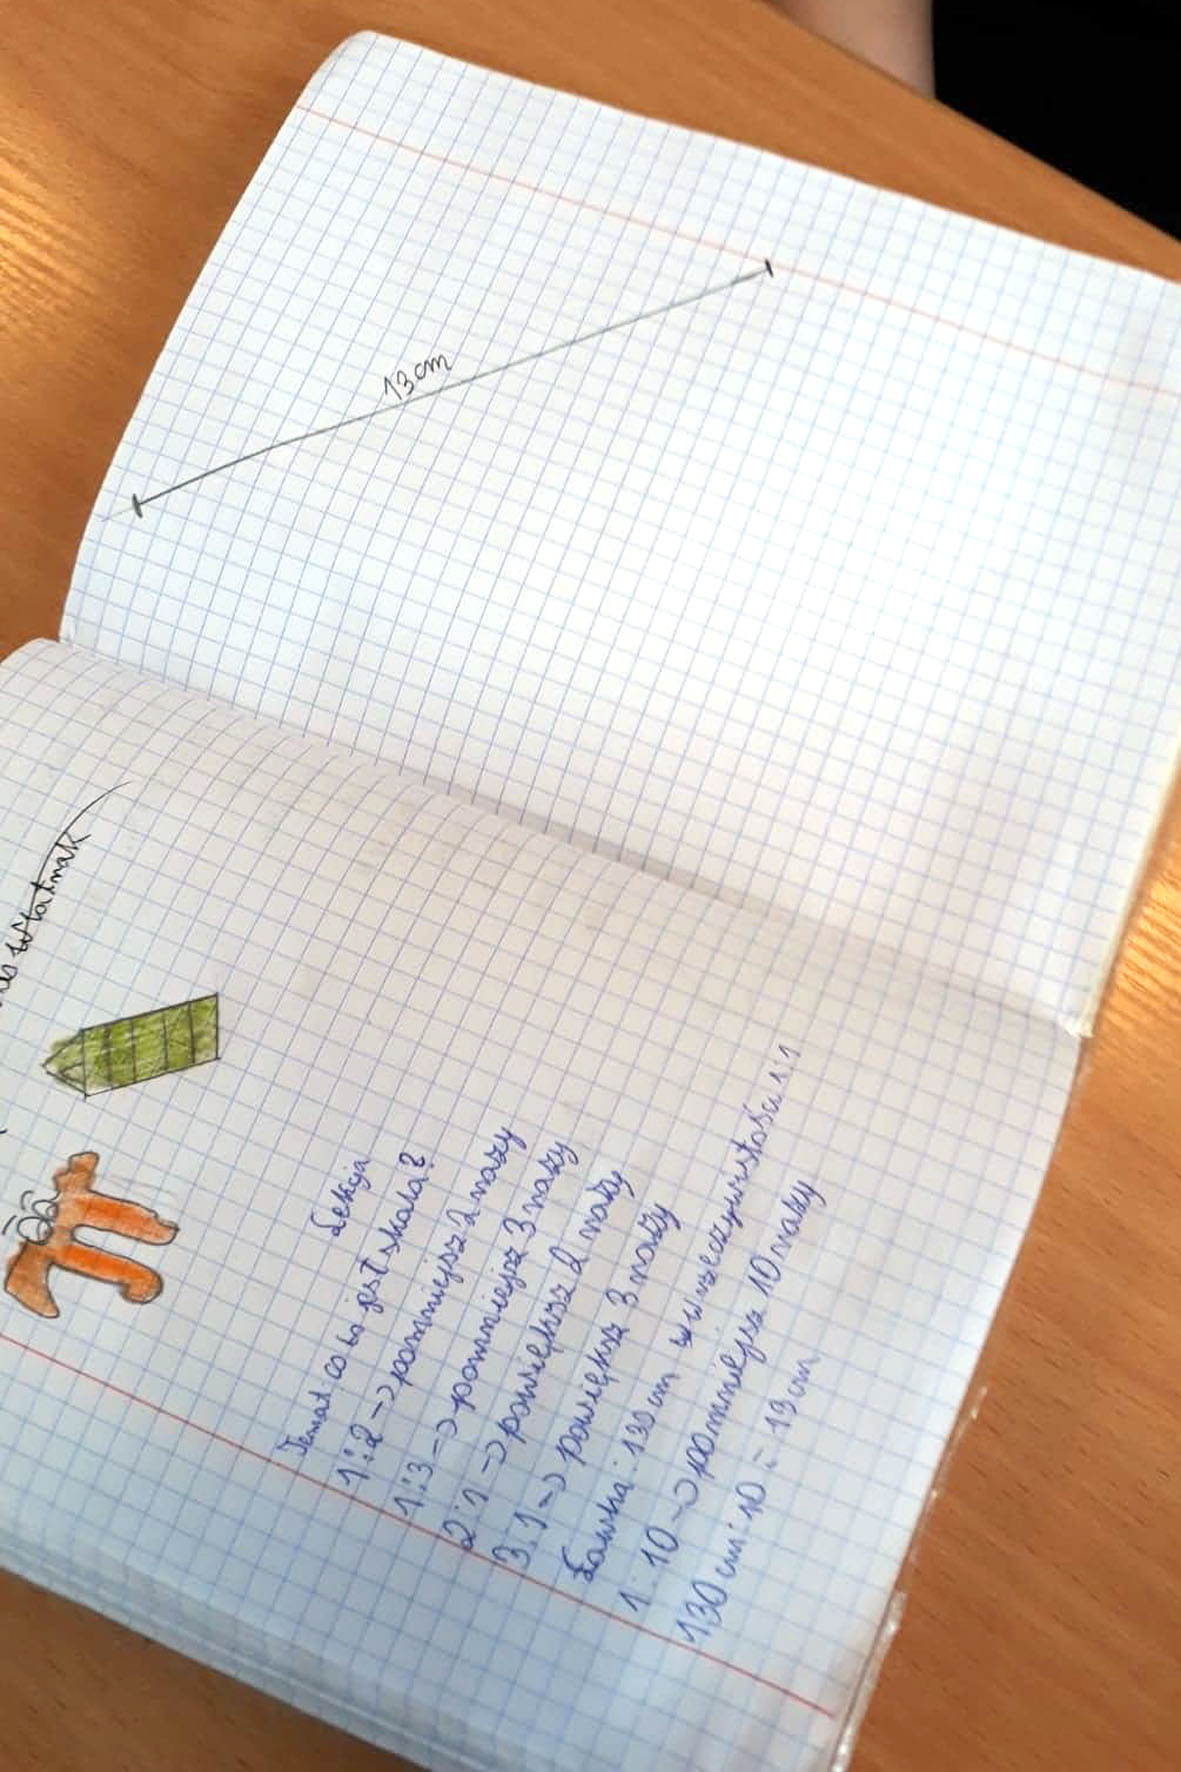 13 cm
Lekcja
Temat: co to jest skala?
1:2 -> pomniejsz 2 razy
1:3 -> pomniejsz 3 razy
2:1 -> powiększ 2 razy
3:1 -> powiększ 3 razy
Ławka: 130 cm w rzeczywistości 1:1
1:10 -> pomniejsz 10 razy
130 cm : 10 = 13 cm